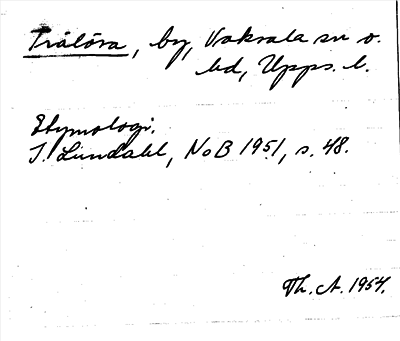 Trälöra, by, Vaksala sn o.
hd, Upps. l.
Etymologi.
I. Lundahl, NoB 1951, s. 48.
Th. A. 1954.